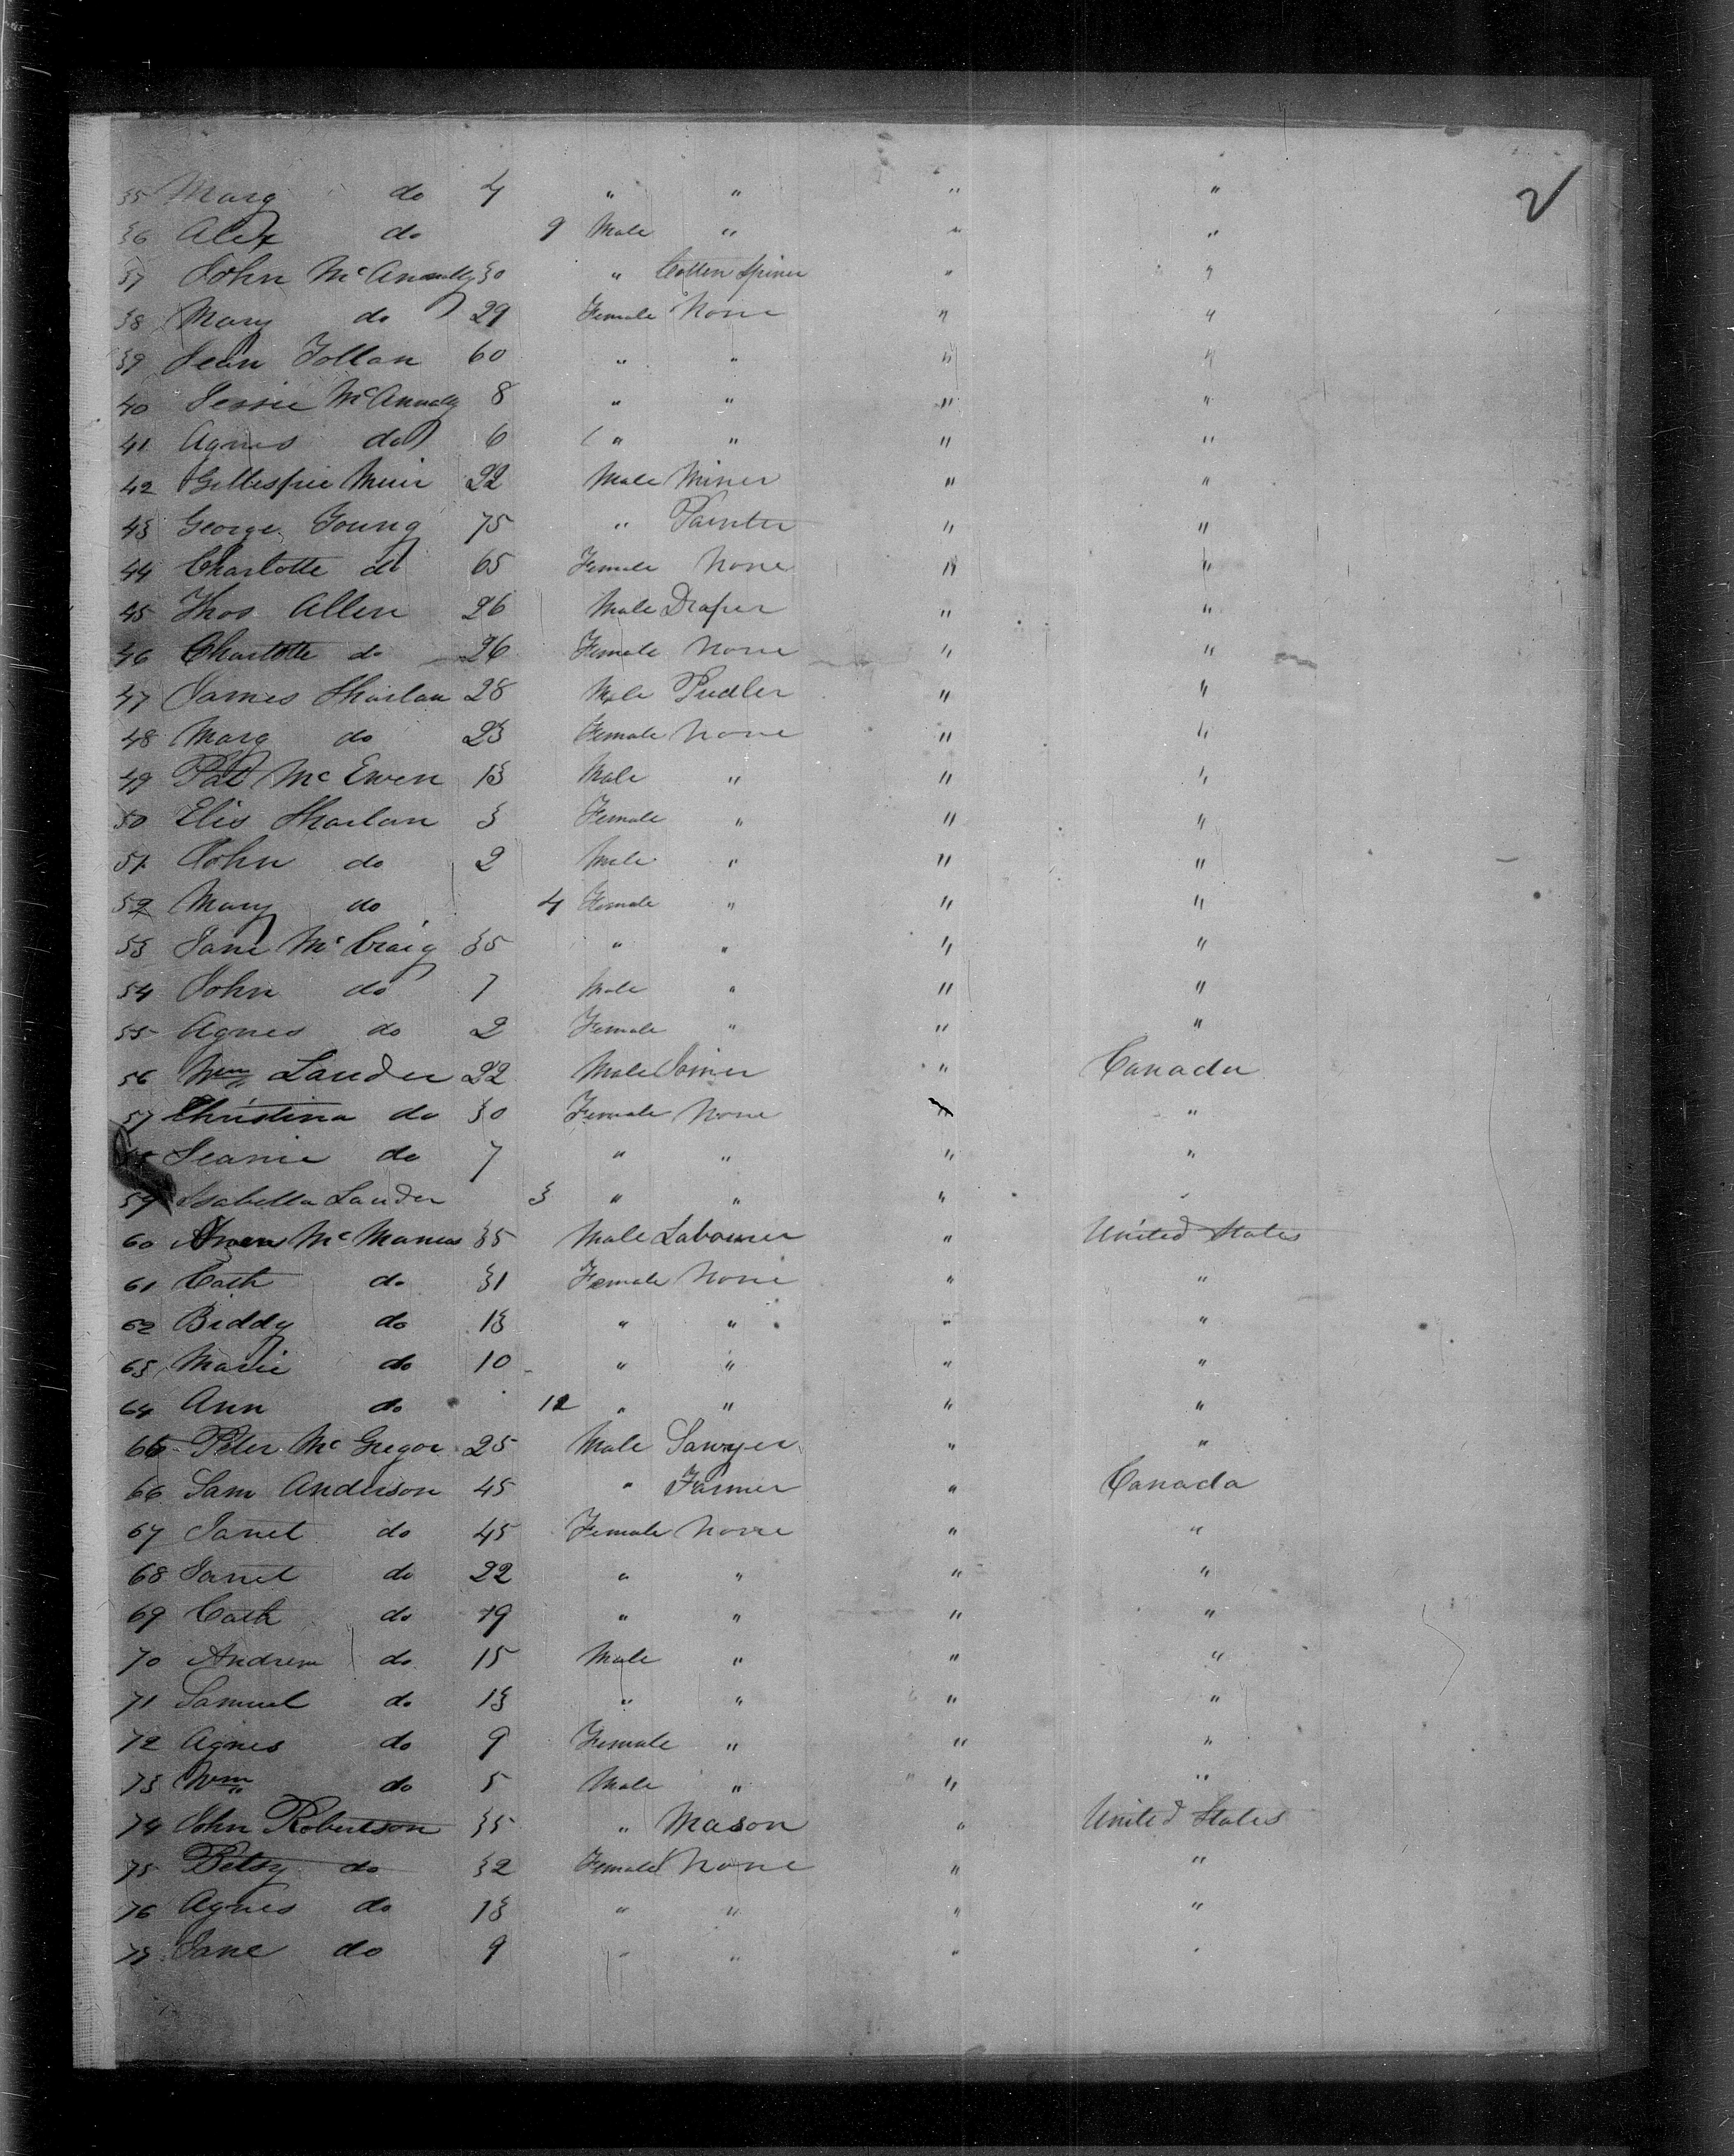 2
35 Marg do 4 " " " "
36 Alex do 9 Male " " "
37 John McAnnally 30 " Cotten Spiner " "
38 Mary do 29 Female None " "
39 Jean Tollan 60 " " " "
40 Jessie McAnnally 8 " " " "
41 Agnes do 6 " " " "
42 Gillespie Muir 22 Male Miner " "
43 George Young 75 " Painter " "
44 Charlotte do 65 Female None " "
45 Thos Allen 26 Male Draper " "
46 Charlotte do 26 Female None " "
47 James Sharlan 28 Male Pudler " "
48 Marg do 23 Female None " "
49 Pat McEwen 13 Male " " "
50 Elis Sharlan 3 Female " " "
51 John do 2 Male " " "
52 Mary do 4 Female " " "
53 Jane McCraig 35 " " " "
54 John do 7 Male " " "
55 Agnes do 2 Female " " "
56 Wm Lauder 22 Male Joiner " Canada
57 Christina do 30 Female None " "
Jeanie do 7 " " " "
59 Isabella Lauder 3 " " " "
60 McManus 35 Male Labourer " United States
61 Cath do 31 Female None " "
62 Biddy do 13 " " " "
63 Marie do 10 " " " "
64 Ann do 12 " " " "
65 Peter McGregor 25 Male Sawyer " "
66 Sam Anderson 45 " Farmer " Canada
67 Janet do 45 Female None " "
68 Janet do 22 " " " "
69 Cath do 19 " " " "
70 Andrew do 15 Male " " "
71 Samuel do 13 " " " "
72 Agnes do 9 Female " " "
73 Wm do 5 Male " " "
74 John Robertson 35 " Mason " United States
75 Betsy do 32 Female None " "
76 Agnes do 13 " " " "
Jane do 9 " " " "